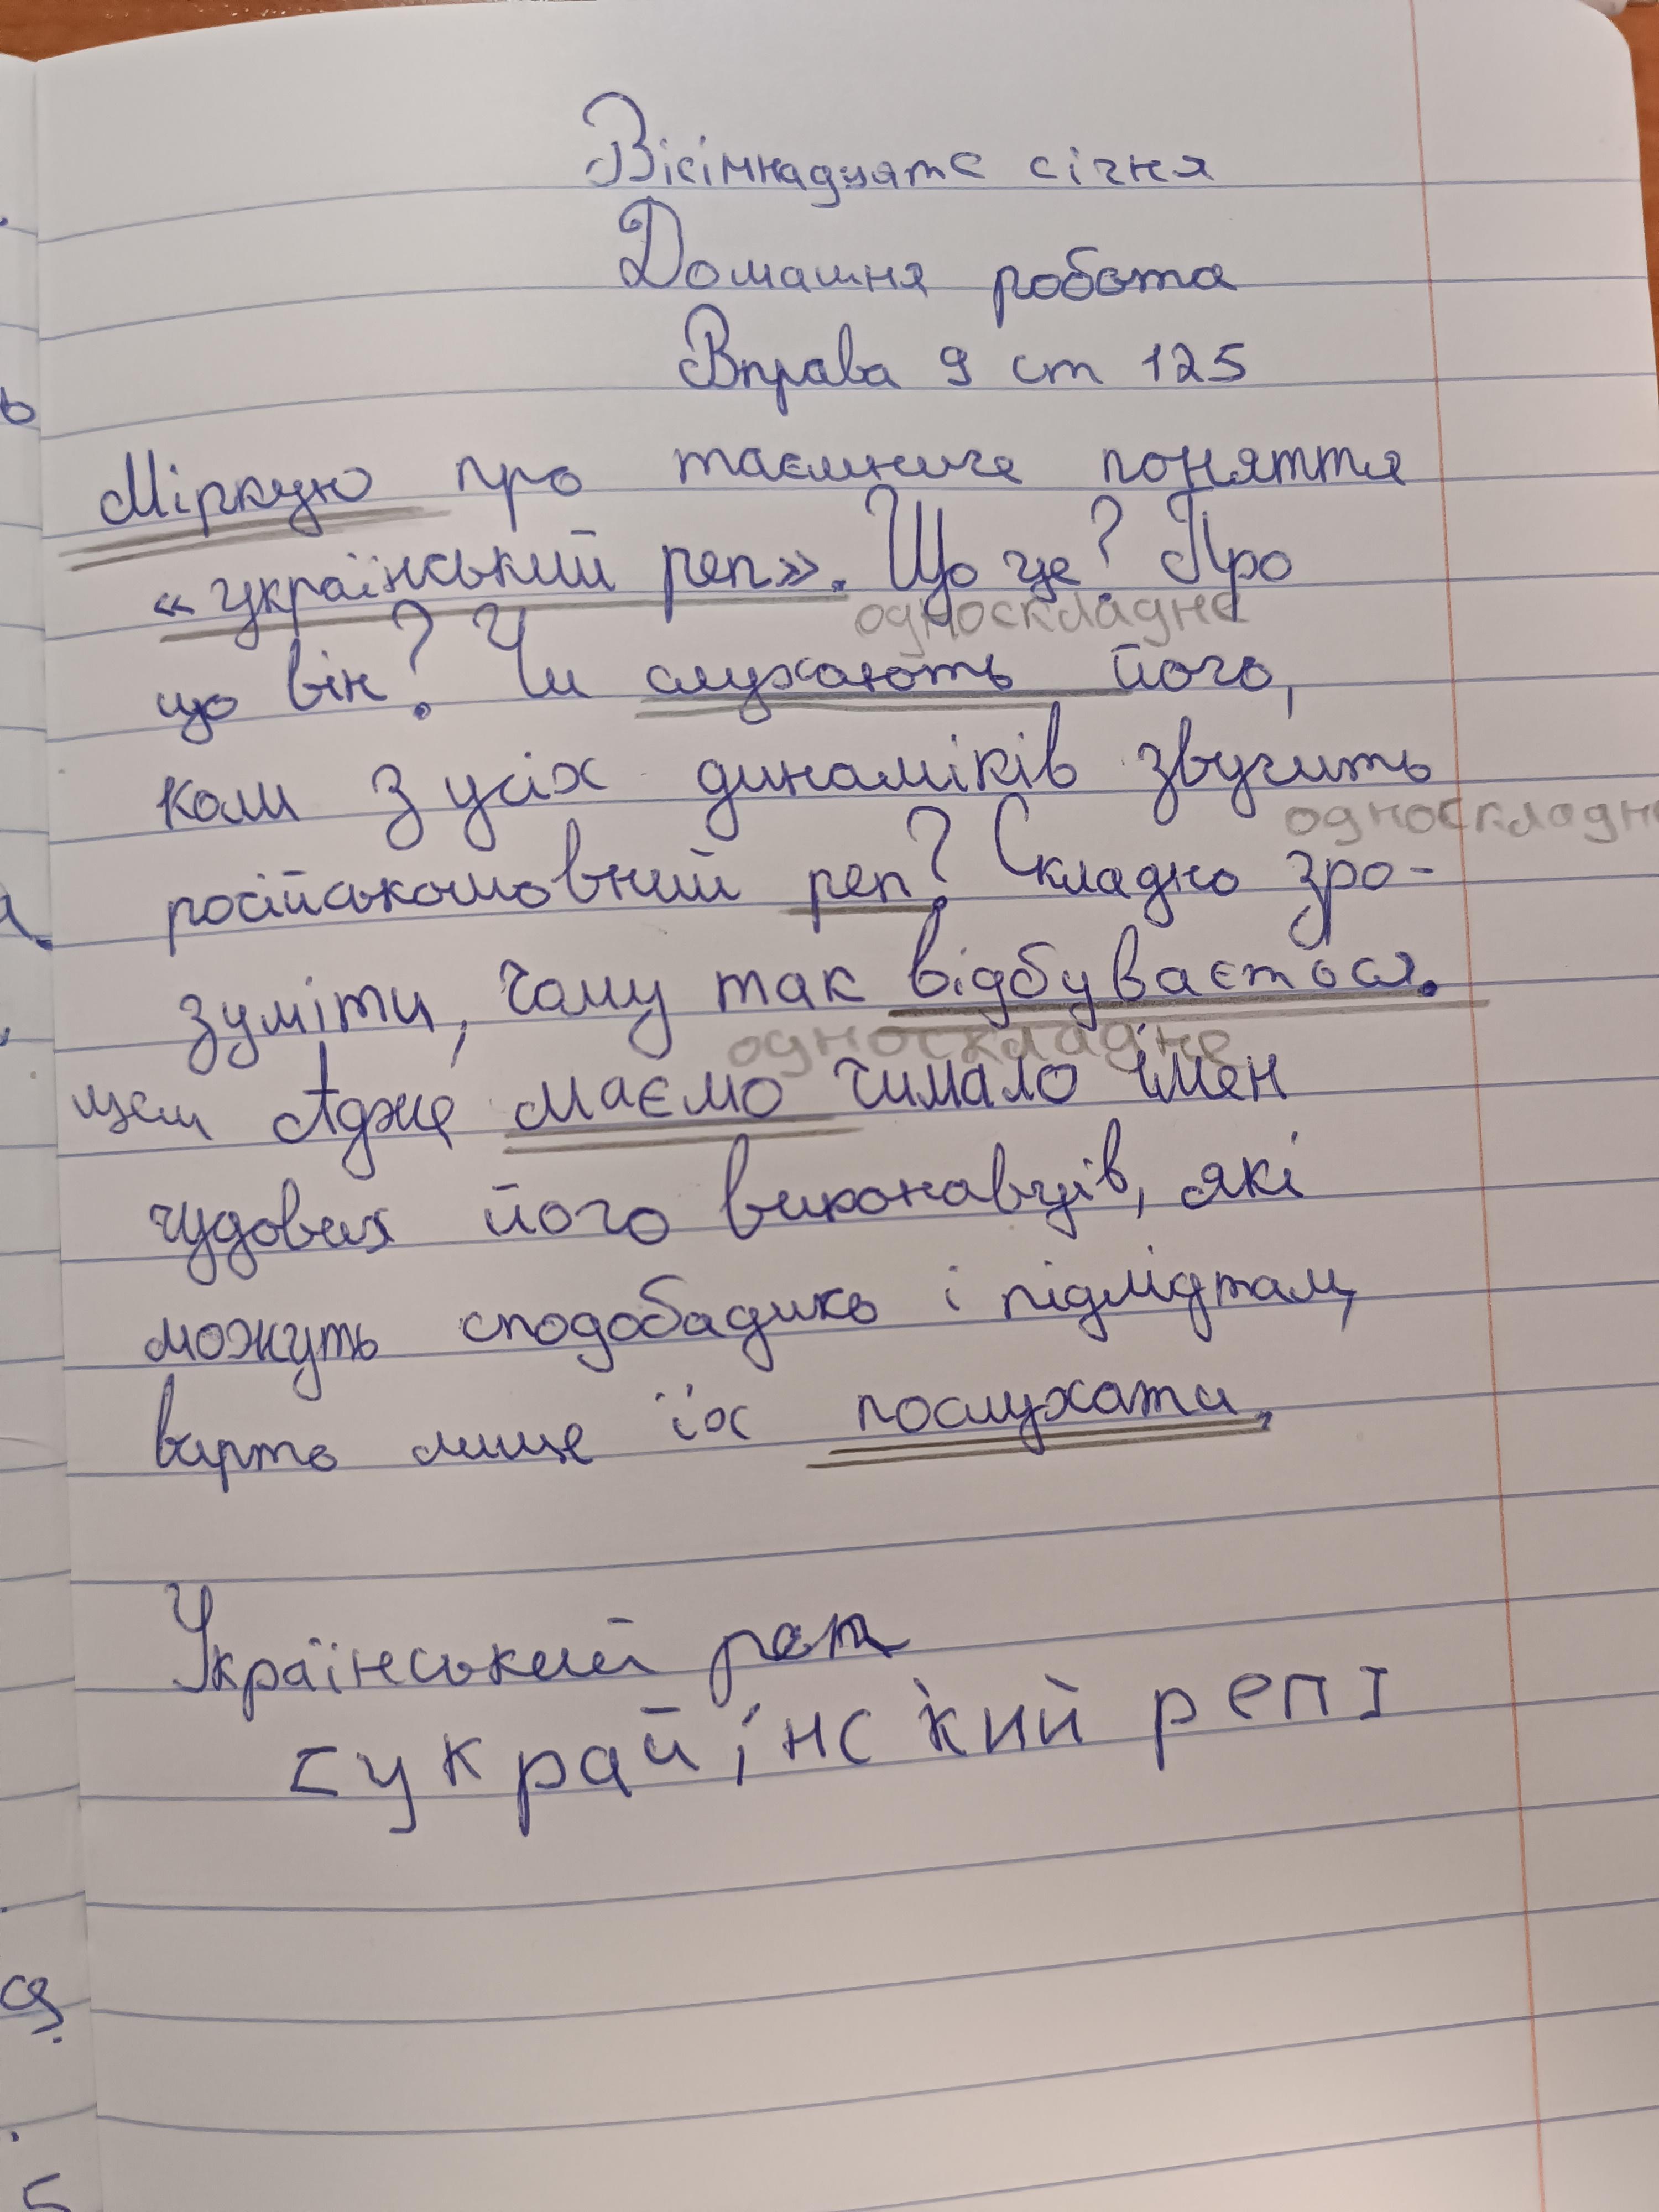 Вісімнадцяте січня
Домашня робота
Вправа 9 ст 125
Міркую про таємниче поняття
«український реп». Що це? Про
односкладне
що він? Чи слухають його,
коли з усіх динаміків звучить
односкладне
російськомовний реп? Складно зро-
зуміти, чому так відбувається.
односкладне
Адже маємо чимало імен
чудових його виконавців, які
можуть сподобадись і підліткам,
варто лише їх послухати.
Український реп
[украйінс'кий реп]